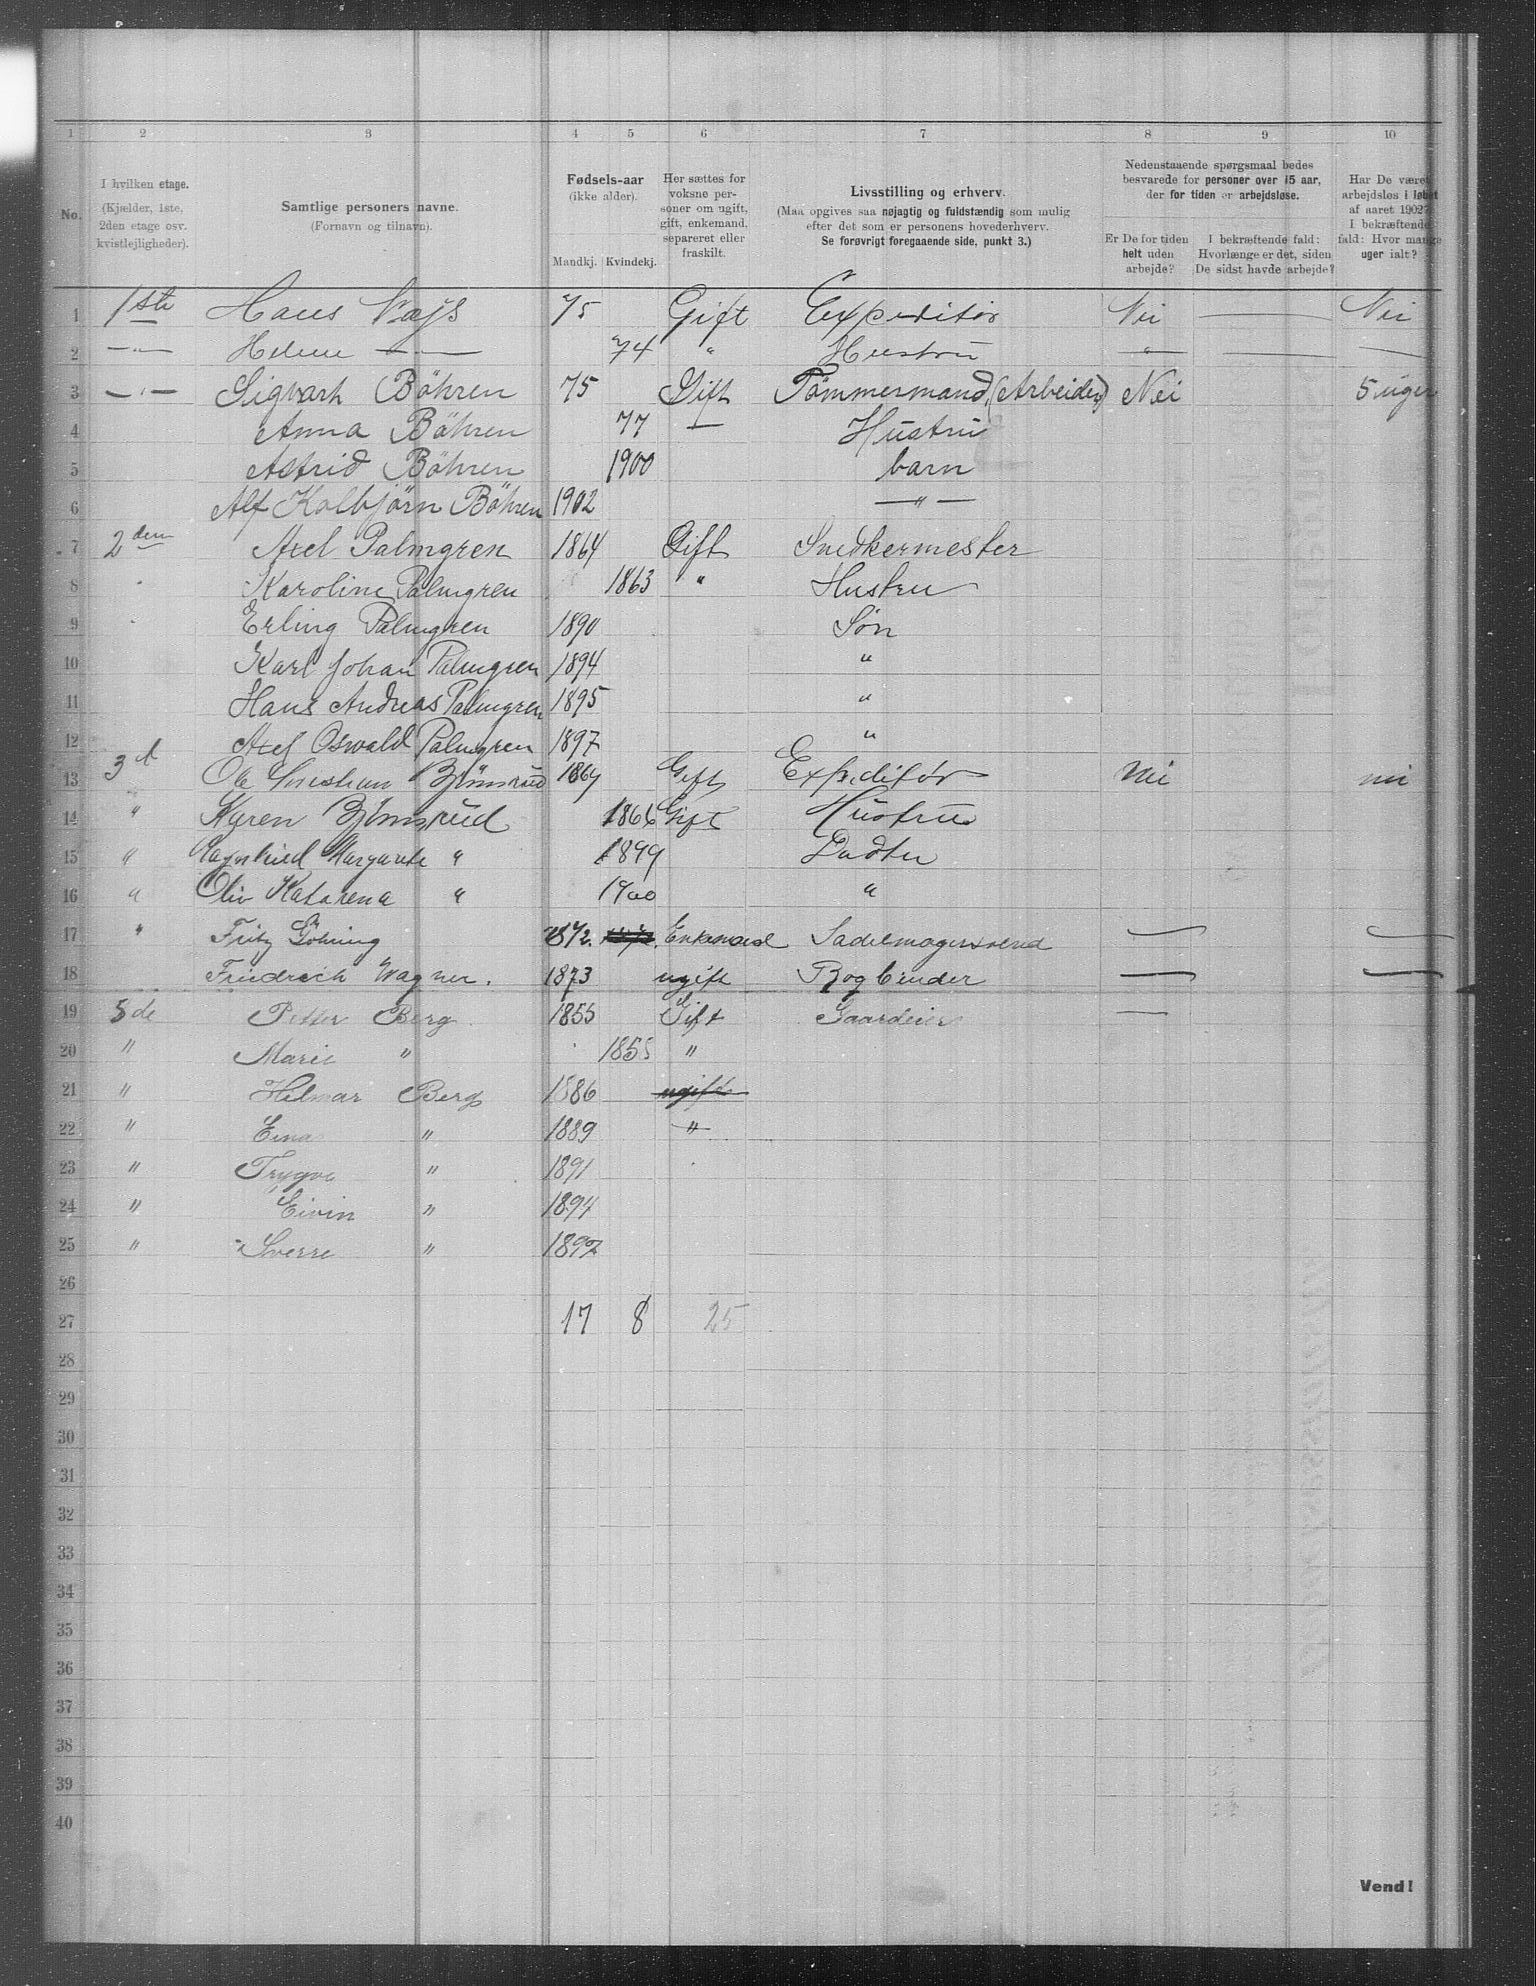 1 2 3 4 5 6 7 8 9 10
No.
I hvilken etage.
(Kjælder, 1ste,
2den etage osv.
kvistlejligheder).
Samtlige personers navne.
(Fornavn og tilnavn).
Fødsels-aar
(ikke alder).
Mandkj. Kvindekj.
Her sættes for
voksne per-
soner om ugift,
gift, enkemand,
separeret eller
fraskilt.
Livsstilling og erhverv.
(Maa opgives saa nøjagtig og fuldstændig som mulig
efter det som er personens hovederhverv.
Se forøvrigt foregaaende side, punkt 3.)
Nedenstaaende spørgsmaal bedes
besvarede for personer over 15 aar,
der for tiden er arbejdsløse.
Er De for tiden
helt uden
arbejde?
I bekræftende fald:
Hvorlænge er det, siden
De sidst havde arbejde?
Har De været
arbejdsløs i løbet
af aaret 1902?
I bekræftende
fald: Hvor mange
uger ialt?
1 1ste Hans 75 Gift Expeditör Nei — Nei
2 —"— Helene —"— 74 " Hustru " — —
3 —"— Sigvart Böhren 75 Gift Tömmermand, (Arbeider) Nei 5 uger
4 Anna Böhren 77 — Hustru
5 Astrid Böhren 1900 barn
6 Alf Kolbjörn Böhren 1902 —"—
7 2den Axel Palmgren 1864 Gift Snedkermester
8 Karoline Palmgren 1863 " Hustru
9 Erling Palmgren 1890 Søn
10 Karl Johan Palmgren 1894 "
11 Hans Andreas Palmgren 1895 "
12 Axel Oswald Palmgren 1897 "
13 3d Ole Christian Björnsrud 1864 Gift Expeditör Nei nei
14 " Karen Björnsrud 1866 Gift Hustru
15 " Ragnhild Margarete " 1899 Dadter
16 " Oliv Katarena " 1900 "
17 " Fritz Göhring 1872. Enkemand Sadelmagersvend — —
18 Friedrich Wagner. 1873 ugift Bogbinder — —
19 3de Petter Berg 1855 Gift Gaardeier —
20 " Marie " 1855 "
21 " Hilmar Berg 1886 ugift
22 " Einar " 1889 "
23 " Trygve " 1891
24 " Eivin " 1894
25 " Sverre " 1897
26
27 17 8 25
28
29
30
31
32
33
34
35
36
37
38
39
40
Vend!